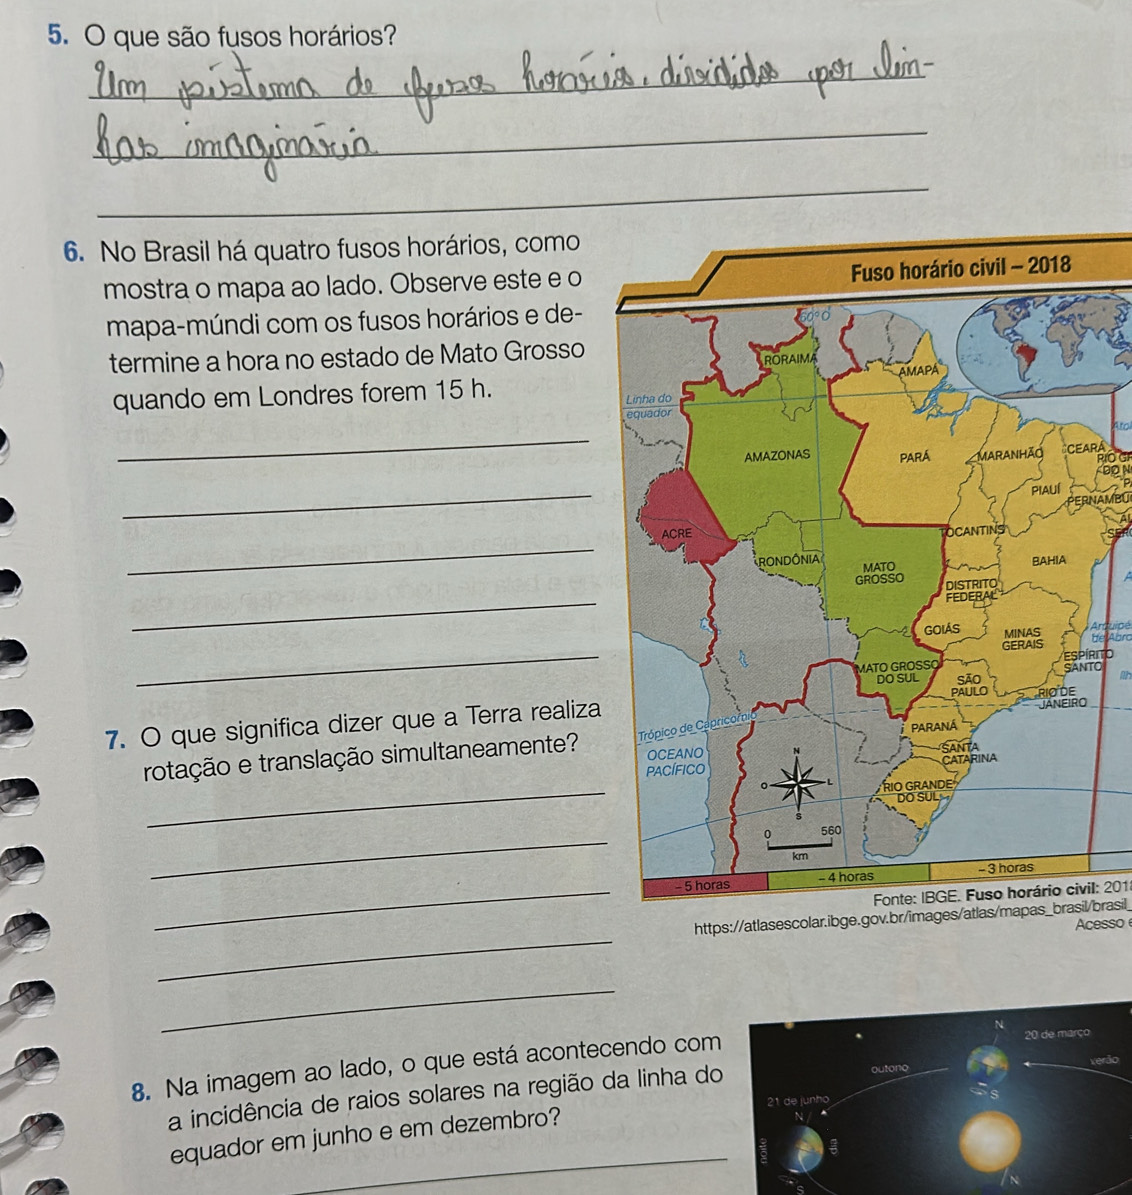 5. O que são fusos horários?
Um sistema de fusos horários, divididos por lin-
has imaginária.
6. No Brasil há quatro fusos horários, como
mostra o mapa ao lado. Observe este e o
mapa-múndi com os fusos horários e de-
termine a hora no estado de Mato Grosso
quando em Londres forem 15 h.
Fuso horário civil – 2018
60° O
RORAIMA
AMAPÁ
Linha do
equador
AMAZONAS
PARÁ
MARANHÃO
CEARÁ
RIO GR
DO N
PIAUÍ
PERNAMBU
ACRE
TOCANTINS
AL
SER
RONDÔNIA
MATO
GROSSO
BAHIA
DISTRITO
FEDERAL
GOIÁS
MINAS
GERAIS
Arquipé
de Abro
ESPÍRITO
SANTO
MATO GROSSO
DO SUL
SÃO
PAULO
RIO DE
JANEIRO
Trópico de Capricórnio
PARANÁ
OCEANO
PACÍFICO
SANTA
CATARINA
RIO GRANDE
DO SUL
N
O
L
S
0 560
km
– 5 horas – 4 horas – 3 horas
Fonte: IBGE. Fuso horário civil: 2018
https://atlasescolar.ibge.gov.br/images/atlas/mapas_brasil/brasil_
Acesso e
7. O que significa dizer que a Terra realiza
rotação e translação simultaneamente?
8. Na imagem ao lado, o que está acontecendo com
a incidência de raios solares na região da linha do
equador em junho e em dezembro?
N
20 de março
verão
outono
S
21 de junho
N
noite
dia
S
N